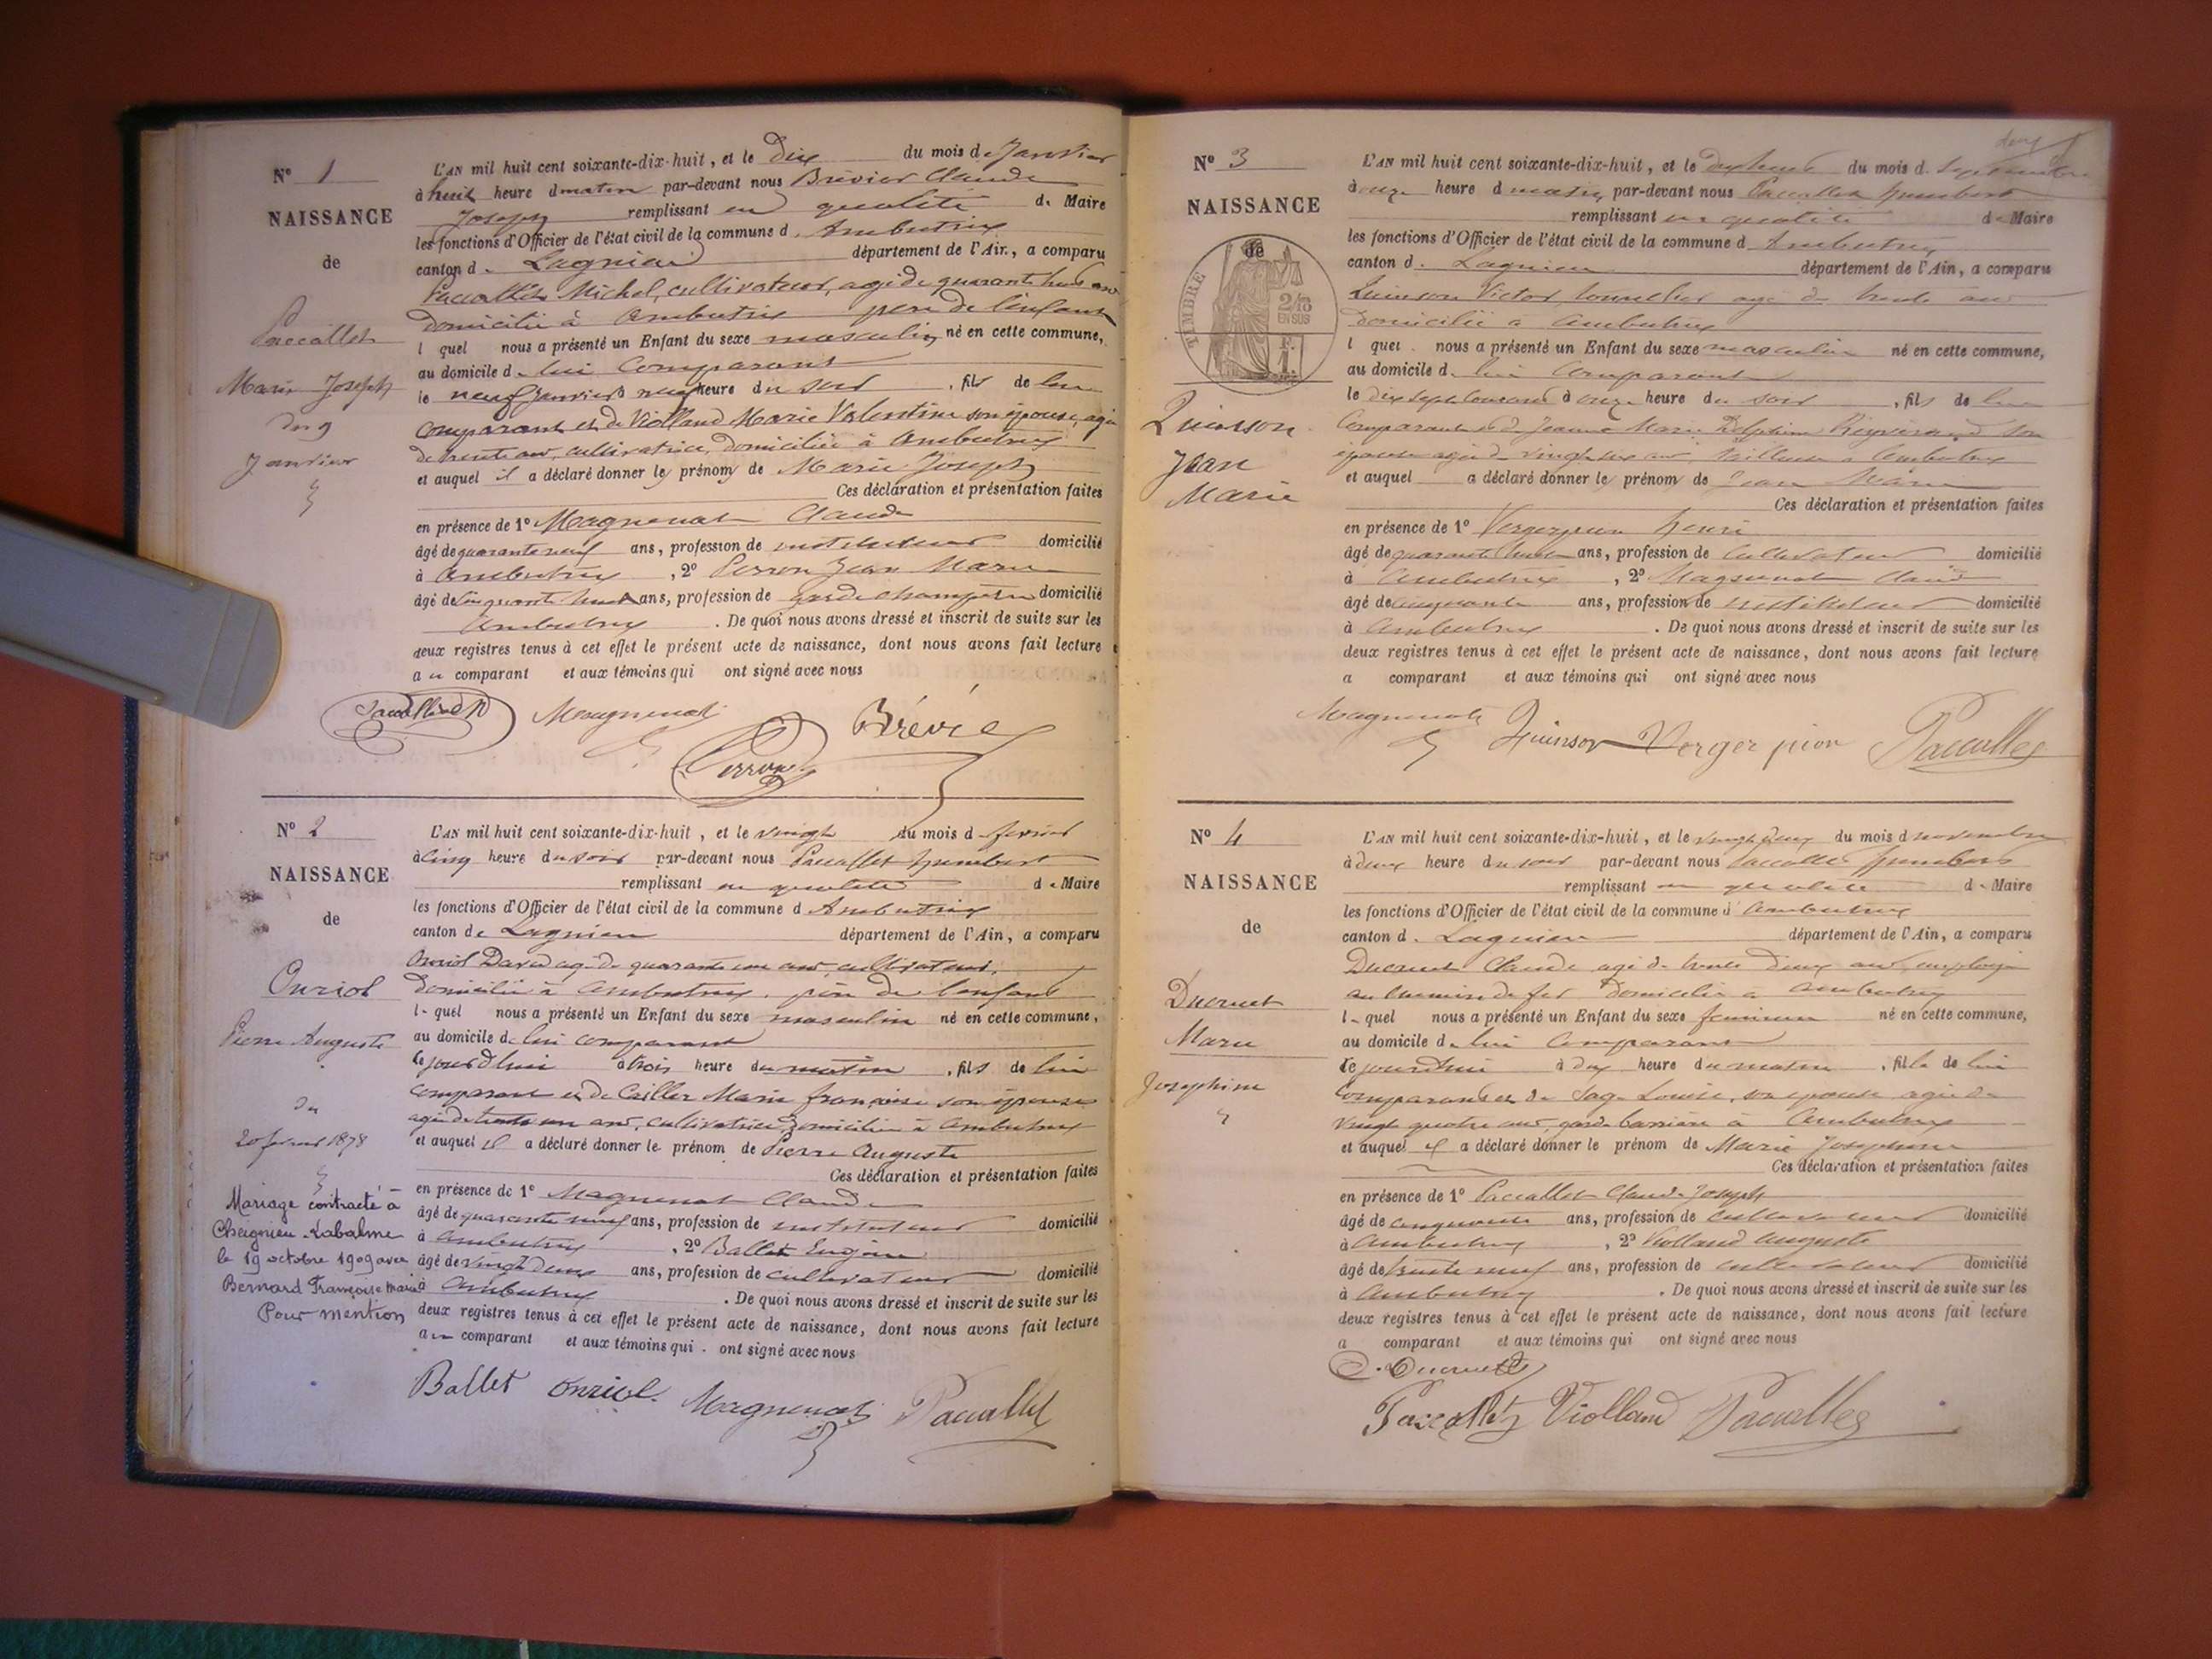 N° 1
NAISSANCE
de
Paccallet
Marie Joseph
du 9
Janvier
L'AN mil huit cent soixante-dix-huit, et le Dix du mois de Janvier
à huit heure d matin par-devant nous Brévier Claude
Joseph remplissant en qualité de Maire
les fonctions d'Officier de l'état civil de la commune d'Ambutrix
canton de Lagnieu département de l'Ain, a comparu
Paccallet Michel, cultivateur, agé de quarante huit ans
domicilié à Ambutrix père de l'enfant
lequel nous a présenté un Enfant du sexe masculin né en cette commune,
au domicile de lui Comparant
le neuf Janvier à neuf heure du soir, fils de lui
comparant et de Violland Marie Valentine son épouse, agée
de trente ans, cultivatrice, domiciliée à Ambutrix
et auquel il a déclaré donner les prénoms de Marie Joseph
Ces déclaration et présentation faites
en présence de 1° Magnenat Claude
âgé de quarante neuf ans, profession de instituteur domicilié
à Ambutrix, 2° Perron Jean Marie
âgé de cinquante huit ans, profession de garde champêtre domicilié
Ambutrix. De quoi nous avons dressé et inscrit de suite sur les
deux registres tenus à cet effet le présent acte de naissance, dont nous avons fait lecture
au comparant et aux témoins qui ont signé avec nous
Magnenat Perron Brévie
N° 2
NAISSANCE
de
Onriol
Pierre Auguste
du
20 février 1878
Mariage contracté à
Cheignieu-Labalme
le 19 octobre 1909 avec
Bernard Françoise Marie
Pour mention
L'AN mil huit cent soixante-dix-huit, et le vingt du mois de février
à cinq heure du soir par-devant nous Paccallet humbert
remplissant en qualité de Maire
les fonctions d'Officier de l'état civil de la commune d Ambutrix
canton de Lagnieu département de l'Ain, a comparu
Onriol David agé de quarante un ans cultivateur,
domicilié à Ambutrix, père de l'enfant
lequel nous a présenté un Enfant du sexe masculin né en cette commune,
au domicile de lui comparant
ce jourd'hui à trois heure du matin, fils de lui
comparant et de Cailler Marie françoise son épouse
agée de trente un ans, cultivatrice, domiciliée à Ambutrix
et auquel il a déclaré donner le prénom de Pierre Auguste
Ces déclaration et présentation faites
en présence de 1° Magnenat Claude
âgé de quarante neuf ans, profession de instituteur domicilié
à Ambutrix, 2° Ballet Eugène
âgé de vingt deux ans, profession de cultivateur domicilié
à Ambutrix. De quoi nous avons dressé et inscrit de suite sur les
deux registres tenus à cet effet le présent acte de naissance, dont nous avons fait lecture
au comparant et aux témoins qui ont signé avec nous
Ballet Onriol Magnenat Paccallet
deux
N° 3
NAISSANCE
de
TIMBRE
2/10
EN SUS
Quinson
Jean
Marie
L'AN mil huit cent soixante-dix-huit, et le dix huit du mois d. Septembre
à onze heure d matin, par-devant nous Paccallet humbert
remplissant en qualité de Maire
les fonctions d'Officier de l'état civil de la commune d Ambutrix
canton d. Lagnieu département de l'Ain, a comparu
Quinson Victor, tonnelier agé de trente ans
domicilié à Ambutrix
lquel nous a présenté un Enfant du sexe masculin né en cette commune,
au domicile de lui Comparant
le dix sept courant à onze heure du soir, fils de lui
Comparant et de Jeanne Marie Delphine son
épouse agée de vingt ans à Ambutrix
et auquel a déclaré donner les prénom de Jean Marie
Ces déclaration et présentation faites
en présence de 1° Vergerpion henri
âgé de quarante huit ans, profession de Cultivateur domicilié
à Ambutrix, 2° Magnenat Claude
âgé de cinquante ans, profession de instituteur domicilié
à Ambutrix. De quoi nous avons dressé et inscrit de suite sur les
deux registres tenus à cet effet le présent acte de naissance, dont nous avons fait lecture
a comparant et aux témoins qui ont signé avec nous
Magnenat Quinson Verger pion Paccallet
N° 4
NAISSANCE
de
Ducruet
Marie
Josephine
L'AN mil huit cent soixante-dix-huit, et le vingt deux du mois d novembre
à deux heure du soir par-devant nous Paccallet humbert
remplissant en qualité de Maire
les fonctions d'Officier de l'état civil de la commune d Ambutrix
canton d. Lagnieu département de l'Ain, a comparu
Ducruet Claude agé de trente deux ans, employé
au chemin de fer domicilié à Ambutrix
lequel nous a présenté un Enfant du sexe féminin né en cette commune,
au domicile de lui Comparant
ce jourd'hui à dix heure du matin, fille de lui
Comparant et de Sage Louise, son épouse agée de
vingt quatre ans, garde barrière à Ambutrix
et auquel il a déclaré donner le prénom de Marie Josephine
Ces déclaration et présentation faites
en présence de 1° Paccallet Claude Joseph
âgé de cinquante ans, profession de cultivateur domicilié
à Ambutrix, 2° Violland Auguste
âgé de trente neuf ans, profession de cultivateur domicilié
à Ambutrix. De quoi nous avons dressé et inscrit de suite sur les
deux registres tenus à cet effet le présent acte de naissance, dont nous avons fait lecture
a comparant et aux témoins qui ont signé avec nous
Ducruet
Paccallet Violland Paccallet